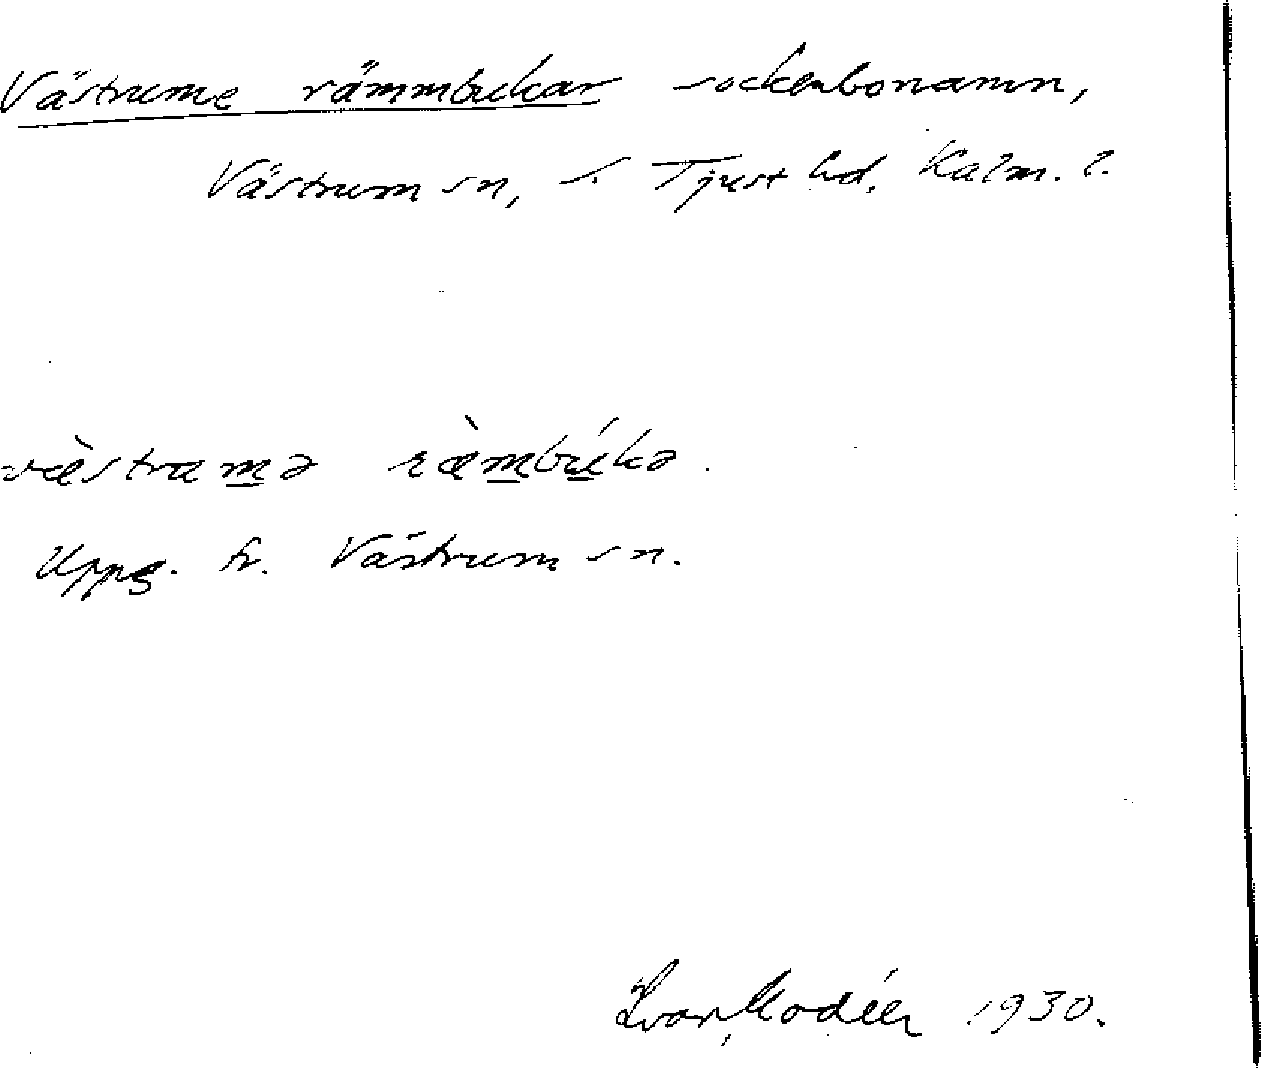 Västrume rämmbukar sockenbonamn,
Västrum sn, s. Tjust hd, Kalm. l.
væ̀strumə ræ̀mbúkə.
Uppg. fr. Västrum sn.
Ivar Modéer 1930.